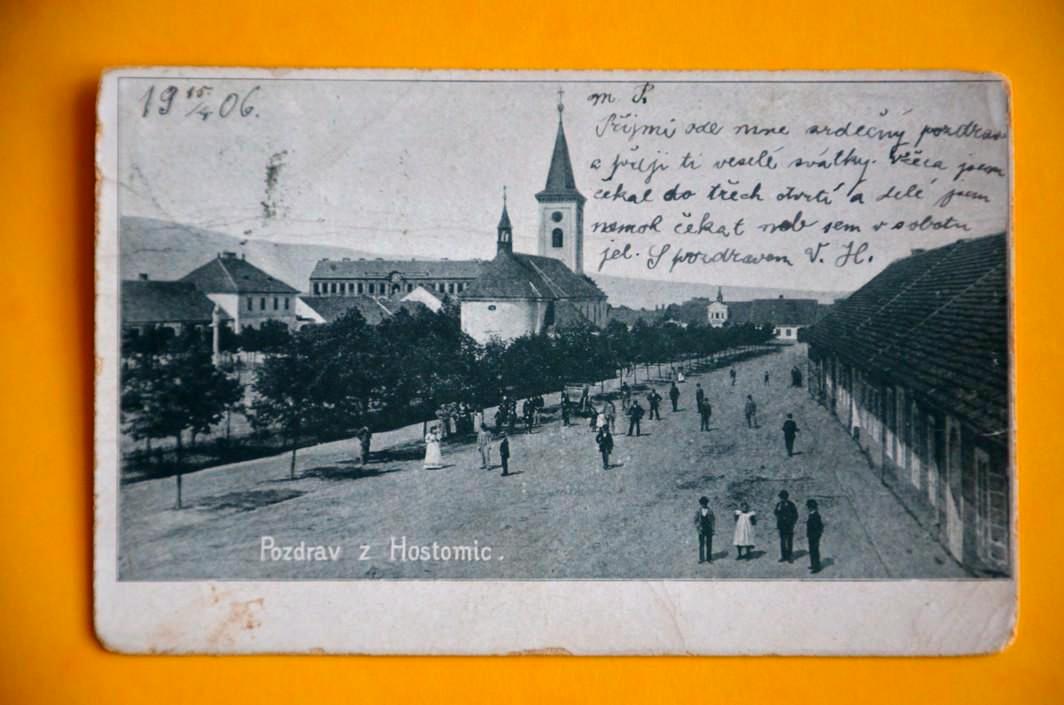 19 15/4 06.
m S.
Přijmi ode mne srdečný pozdrav
a přeji ti veselé svátky. Věra jsem
čekal do třech čtvrtí a delé jsem
nemok čekat neb sem v sobotu
jel. S pozdravem V. H.
Pozdrav z Hostomic.